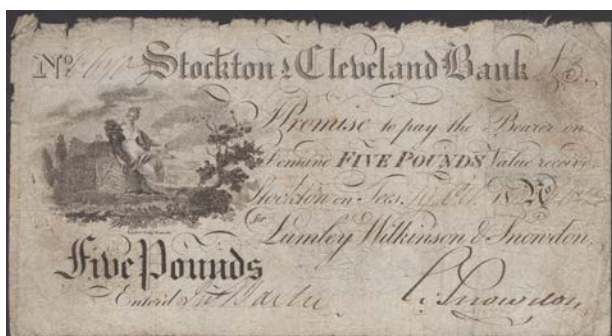 No Stockton & Cleveland Bank £5
I Promise to pay the Bearer on
Demand FIVE POUNDS Value receiv
Stockton on Tees 18 No
for Lumley Wilkinson & Snowdon
Five Pounds
Enterd
Snowdon